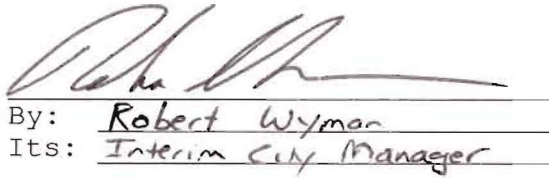 By: Robert Wyman
Its: Interim City Manager